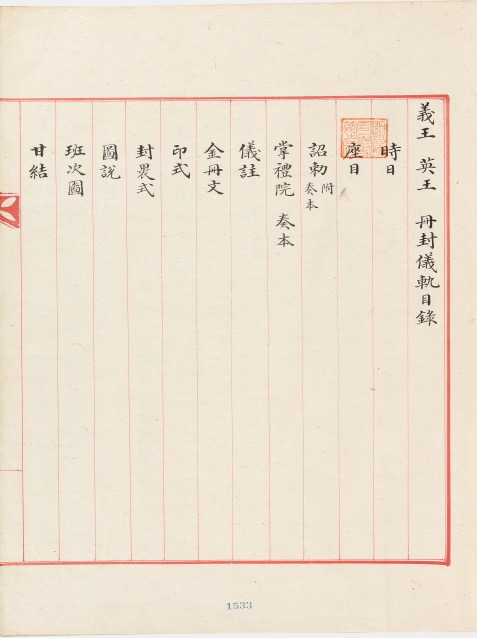 義王 英王 冊封儀軌目錄
時日
座目
詔勅 附奏本
掌禮院 奏本
儀註
金冊文
印式
封裹式
圖說
班次圖
甘結
1533